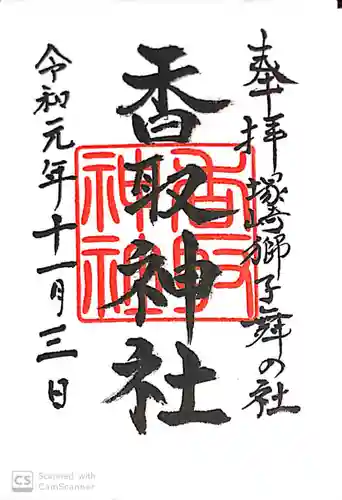 奉拝 塚崎獅子舞の社
香取神社
香取
神社
令和元年十一月三日
CS Scanned with
CamScanner